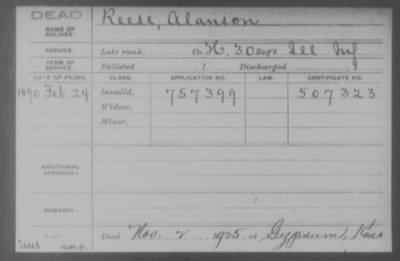 DEAD
NAME OF SOLDIER:
Reese, Alanson
SERVICE:
Late rank, Co. H, 30 Reg't Ill Inf
TERM OF SERVICE:
Enlisted , 1 Discharged , 1
DATE OF FILING. CLASS. APPLICATION NO. LAW. CERTIFICATE NO.
1890 Feb 24 Invalid, 757399 507323
Widow,
Minor,
ADDITIONAL SERVICES:
REMARKS:
Died Nov. 2 1925, at Gypsum, Kans.